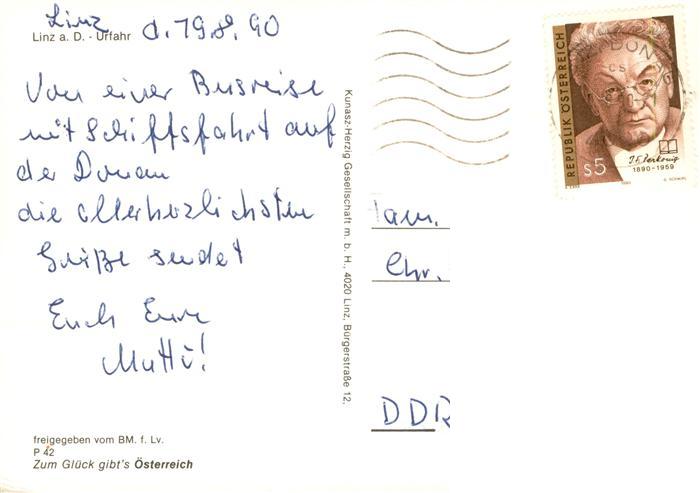 Linz d. 19.8. 90
Linz a. D. - Urfahr
Von einer Busreise
mit Schiffsfahrt auf
der Donau
die allerherzlichsten
Grüße sendet
Euch Eure
Mutti!
freigegeben vom BM. f. Lv.
P 42
Zum Glück gibt's Österreich
Kunasz-Herzig Gesellschaft m. b. H., 4020 Linz, Bürgerstraße 12.
REPUBLIK ÖSTERREICH
S5
J. F. Perkonig
1890-1959
1990
Fam.
Chr.
DDR